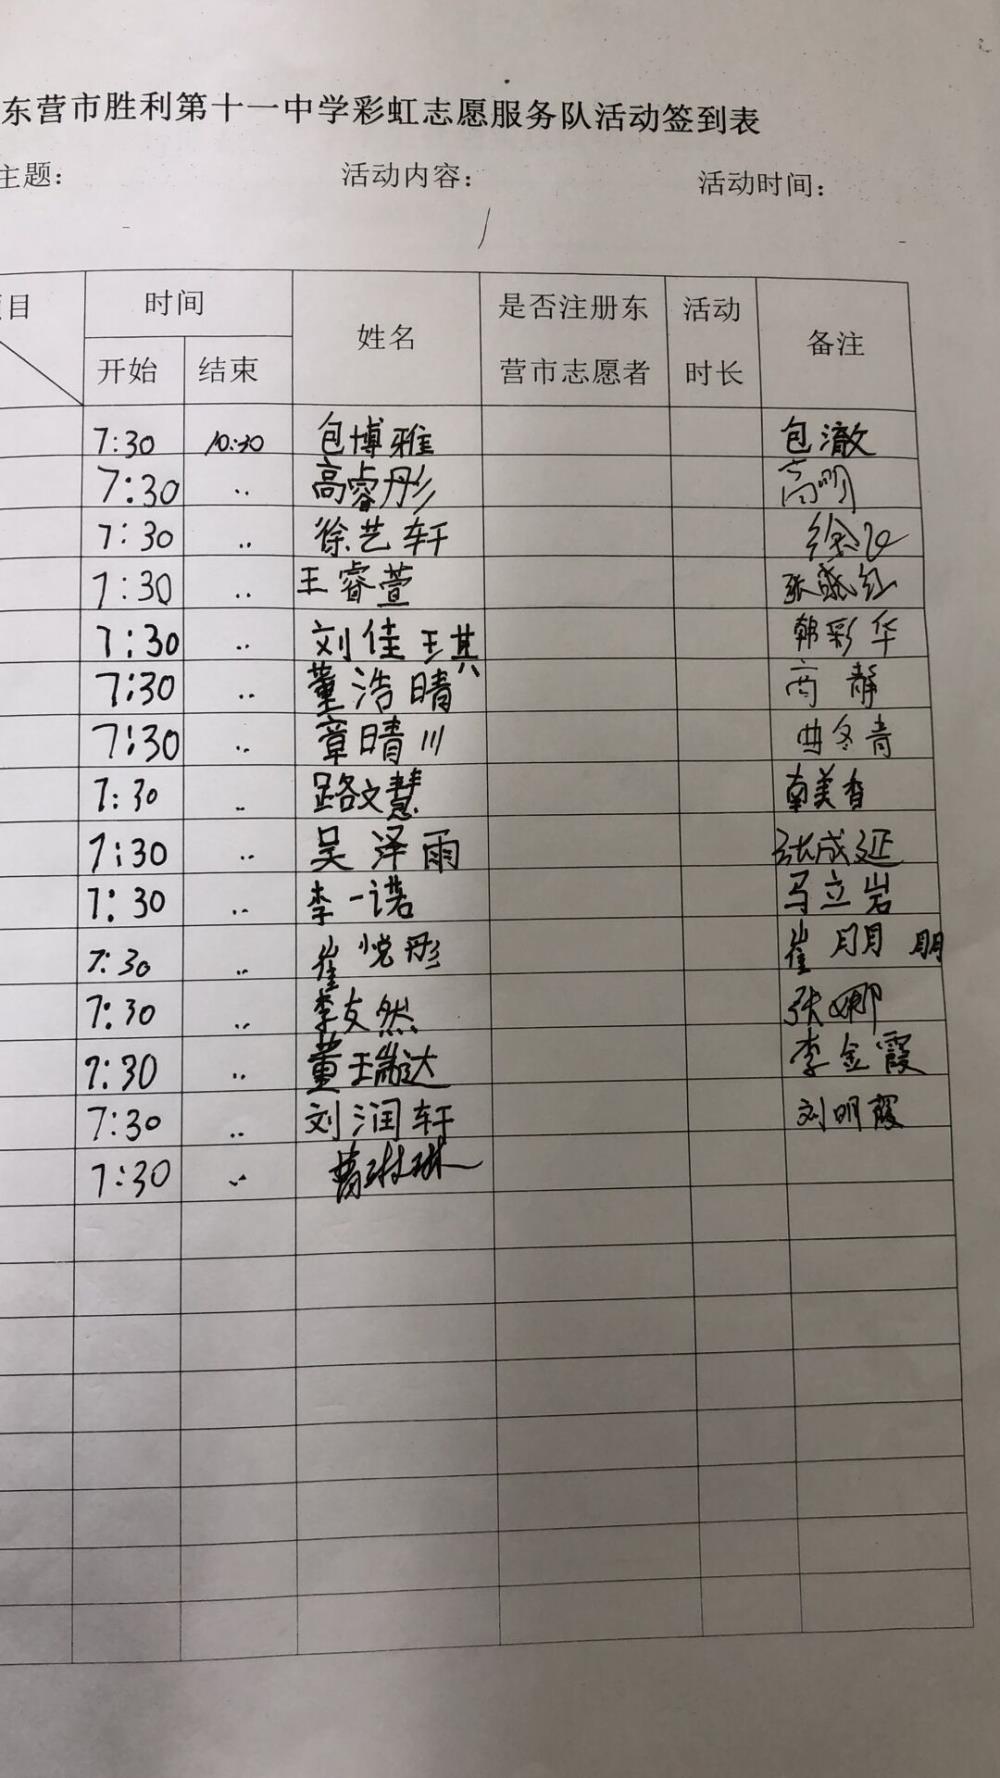 东营市胜利第十一中学彩虹志愿服务队活动签到表
主题： 活动内容： 活动时间：
目 时间 姓名 是否注册东营市志愿者 活动时长 备注
开始 结束
7:30 10:30 包博雅 包澈
7:30 .. 高睿彤 高明
7:30 .. 徐艺轩 徐
7:30 .. 王睿萱 张晓红
7:30 .. 刘佳琪 韩彩华
7:30 .. 董浩晴 高静
7:30 .. 章晴川 曲冬青
7:30 .. 路文慧 南美香
7:30 .. 吴泽雨 张成延
7:30 .. 李一诺 马立岩
7:30 .. 崔悦彤 崔明明
7:30 .. 李友然 张娜
7:30 .. 董瑞达 李金霞
7:30 .. 刘润轩 刘明霞
7:30 .. 琳琳